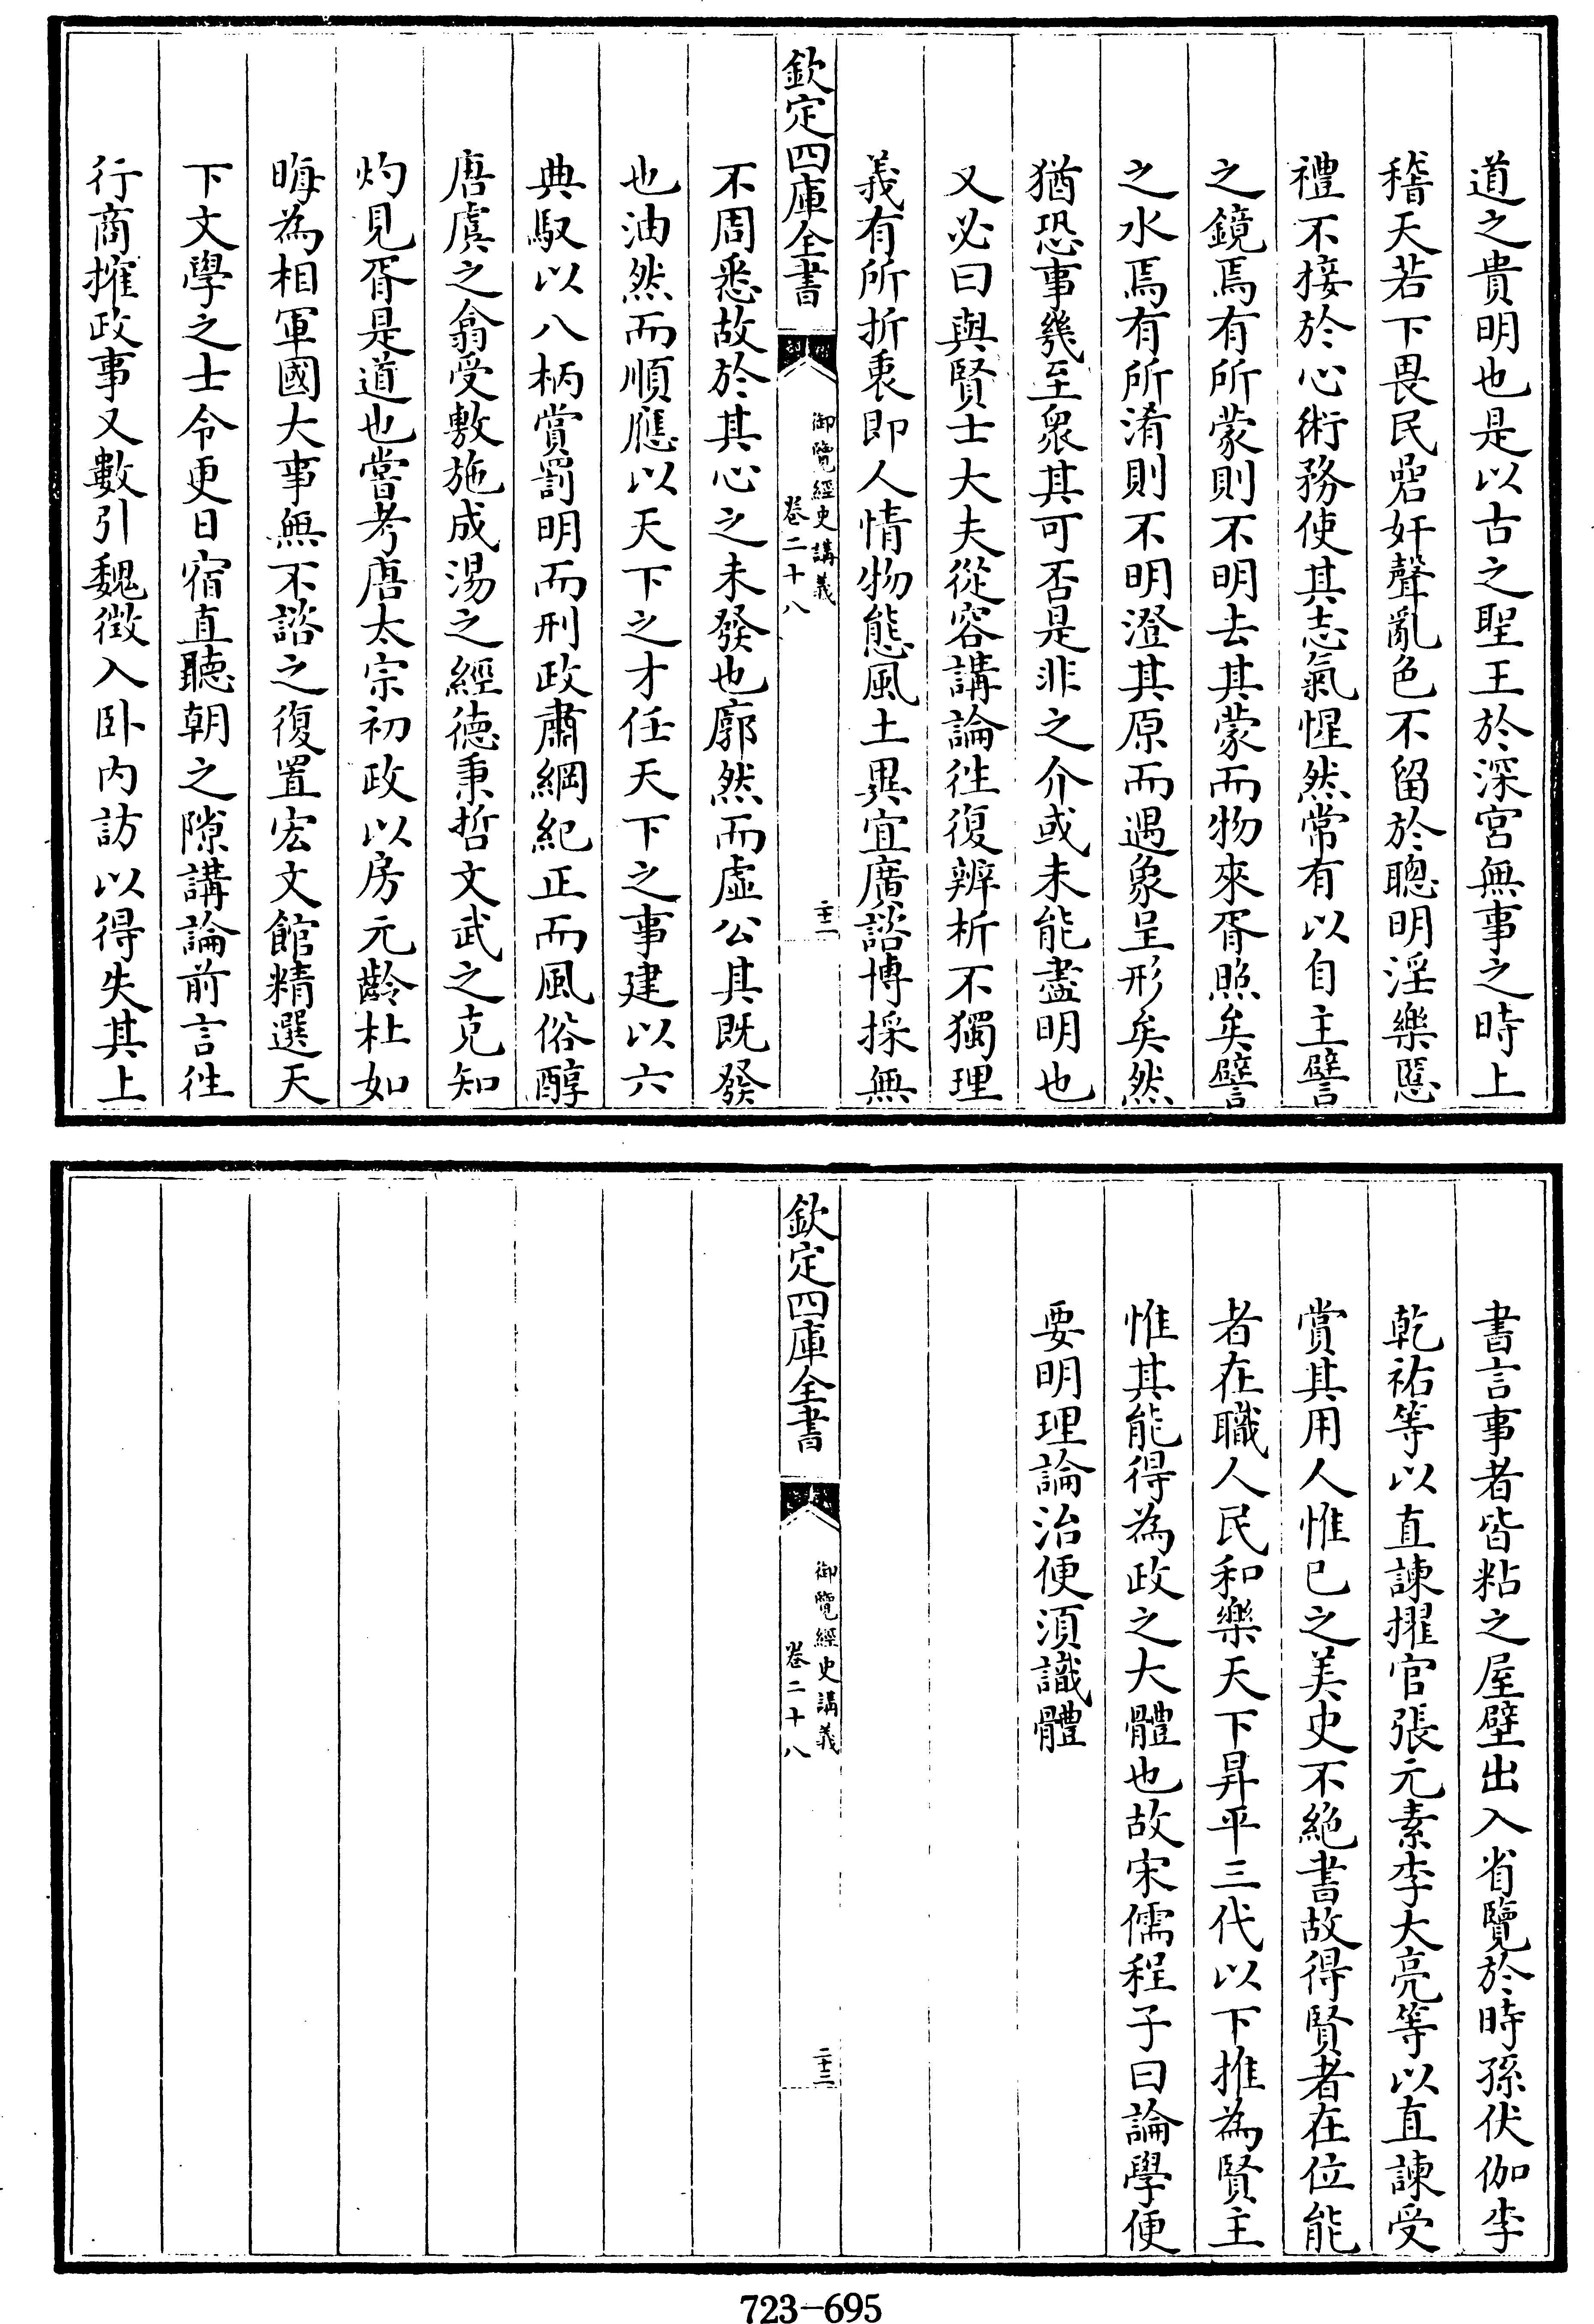 道之貴明也是以古之聖王於深宮無事之時上
稽天若下畏民嵒奸聲亂色不留於聰明淫樂慝
禮不接於心術務使其志氣惺然常有以自主譬
之鏡焉有所蒙則不明去其蒙而物來胥照矣譬
之水焉有所淆則不明澄其原而遇象呈形矣然
猶恐事幾至衆其可否是非之介或未能盡明也
又必曰與賢士大夫從容講論徃復辨析不獨理
義有所折衷即人情物態風土異宜廣諮博採無
欽定四庫全書
御覽經史講義
卷二十八
二十二
不周悉故於其心之未發也廓然而虛公其既發
也油然而順應以天下之才任天下之事建以六
典馭以八柄賞罰明而刑政肅綱紀正而風俗醇
唐虞之翕受敷施成湯之經德秉哲文武之克知
灼見胥是道也嘗考唐太宗初政以房元齡杜如
晦為相軍國大事無不諮之復置宏文館精選天
下文學之士令更日宿直聽朝之隙講論前言徃
行商搉政事又數引魏徴入卧内訪以得失其上
書言事者皆粘之屋壁出入省覽於時孫伏伽李
乾祐等以直諫擢官張元素李大亮等以直諫受
賞其用人惟已之美史不絶書故得賢者在位能
者在職人民和樂天下昇平三代以下推為賢主
惟其能得為政之大體也故宋儒程子曰論學便
要明理論治便須識體
欽定四庫全書
御覽經史講義
卷二十八
二十三
723-695